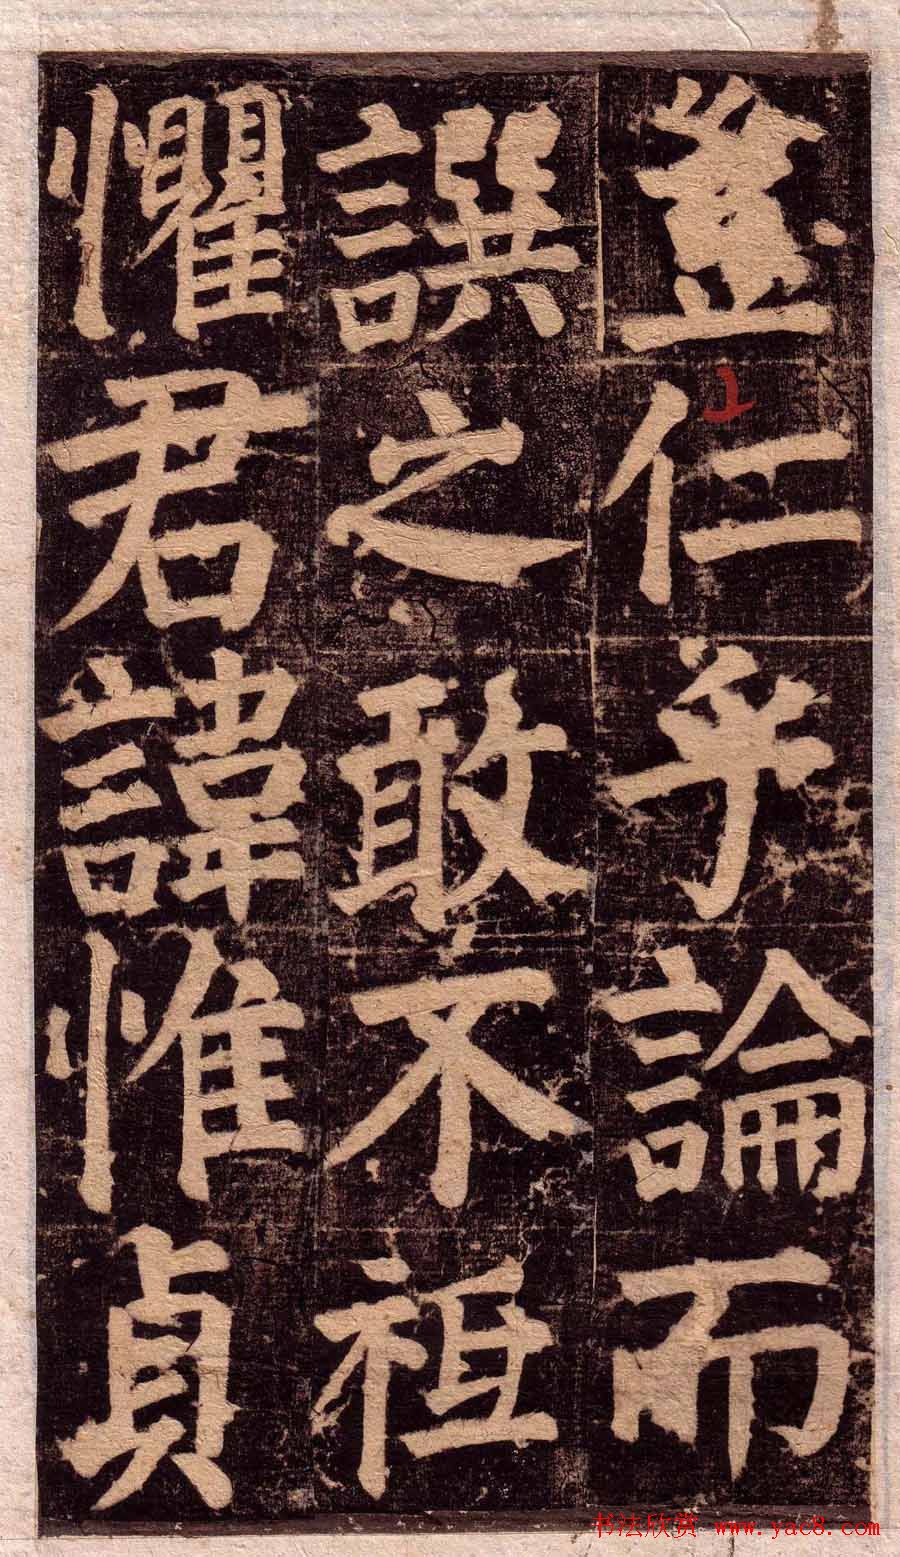 仁乎論而
譔之敢不祗
懼君諱惟貞
书法欣赏 www.yac8.com